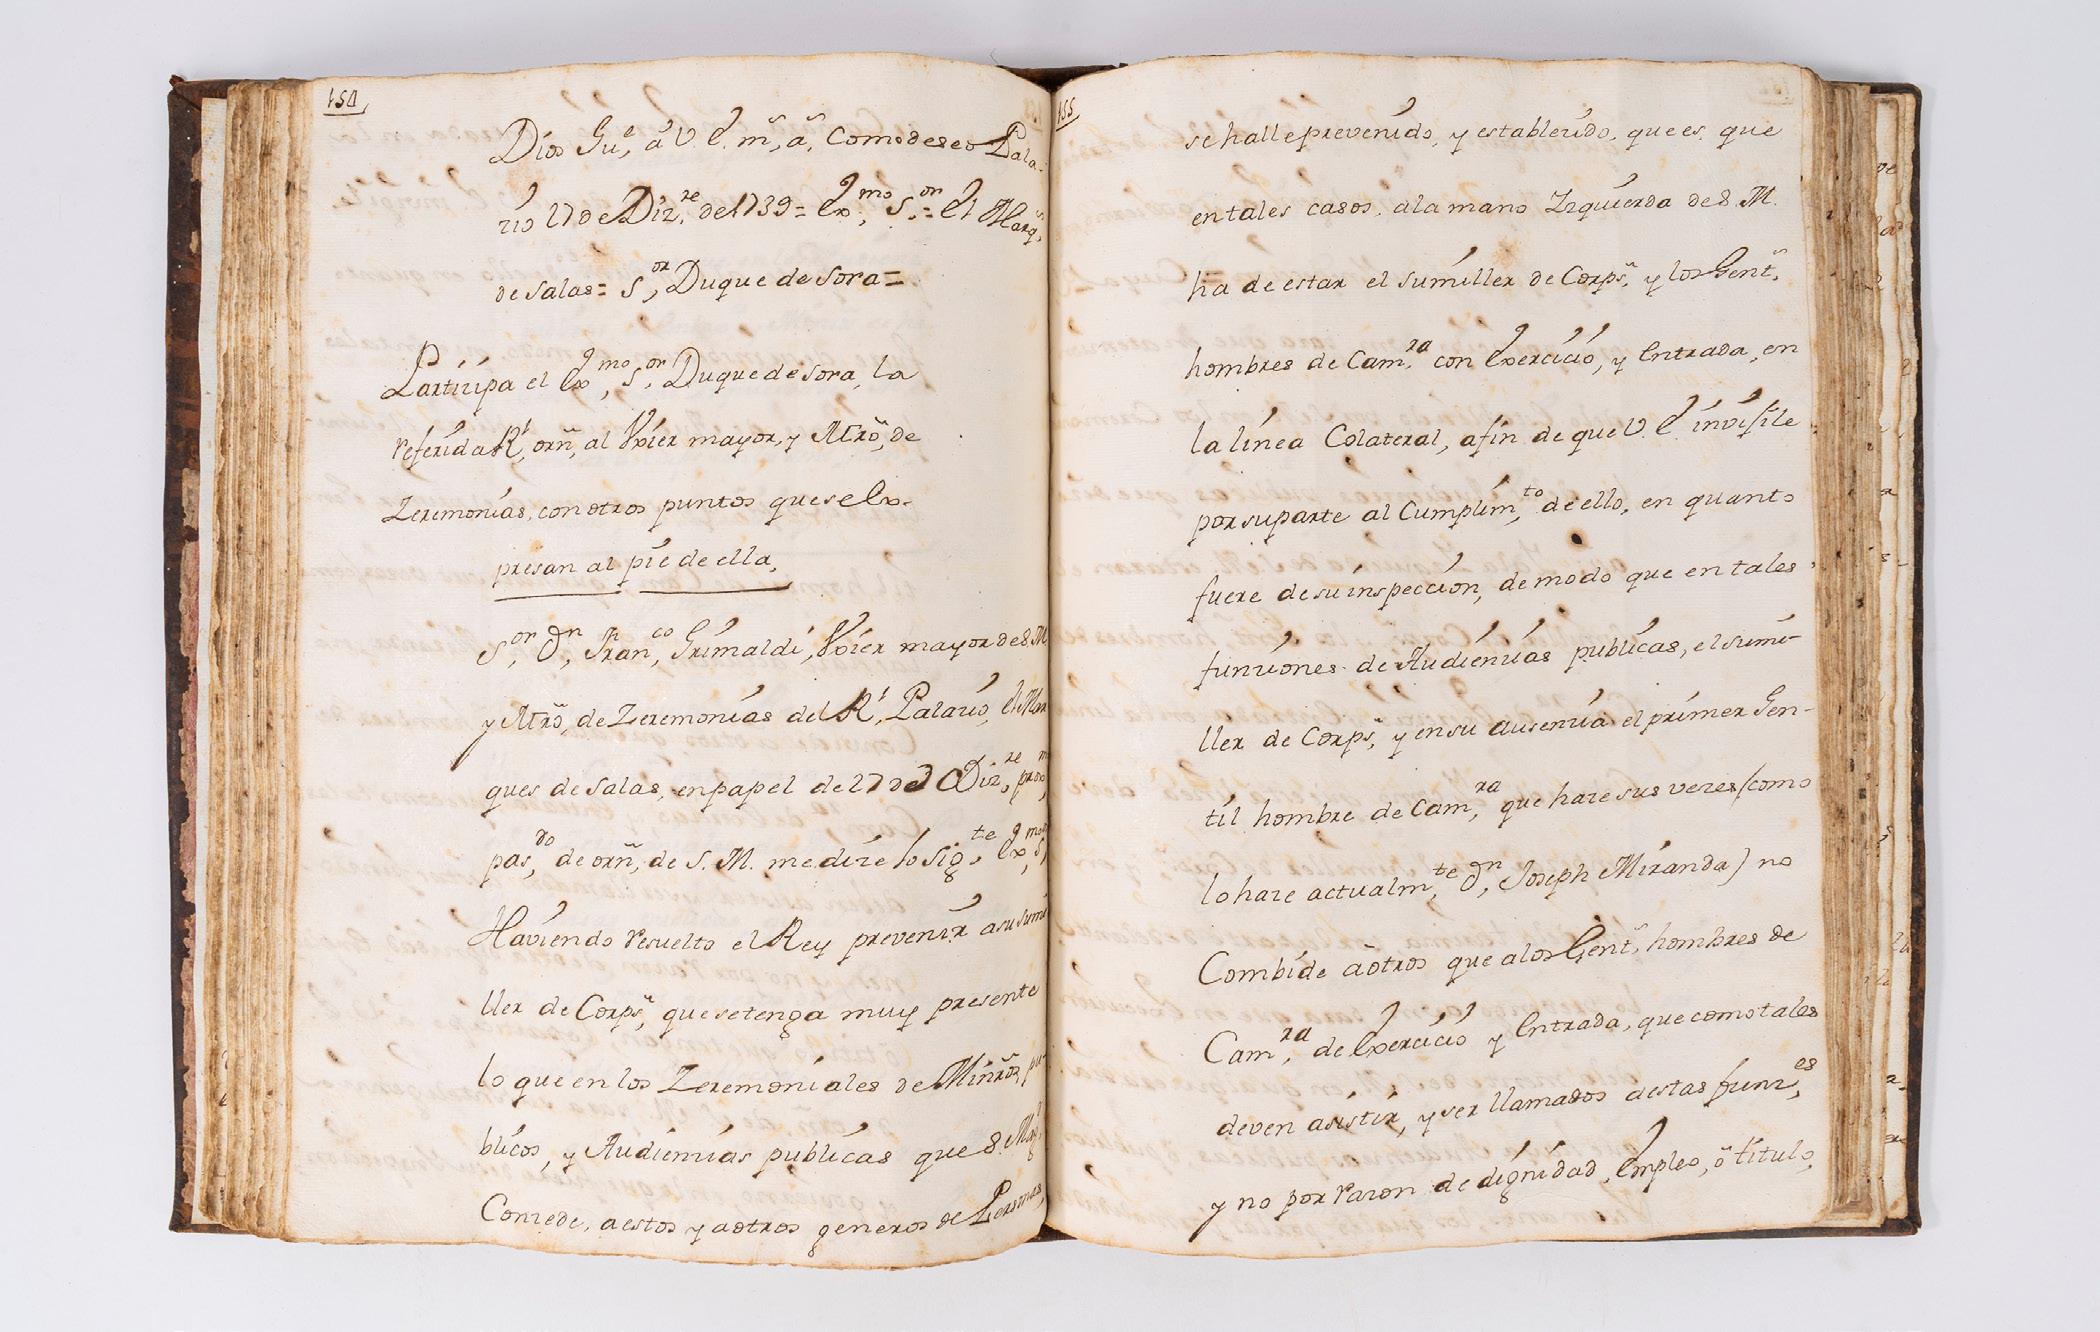 154
Dios Gu,^e a V. E. m,^s a,^s Como deseo Pala-
cio 17 de Diz,^re de 1739 = Ex,^mo S,^or = El Marq,^s
de Salas = S,^or Duque de Sora =
Participa el Ex,^mo S,^or Duque de Sora, la
referida R^l, orñ, al Vxier mayor, y Mrõ, de
Zeremonias, con otros puntos que se Ex-
presan al pie de ella,
S,^or D,^n Fran,^co Grimaldi, Vxier mayor de S. M.
y Mrõ, de Zeremonias del R^l, Palacio, el Mar
ques de Salas, en papel de 17 de Diz,^re prox,^mo
pas,^do de orñ, de S. M. me dize lo sig,^te Ex,^mo S,
Haviendo resuelto el Rey prevenir a su sumi
ller de Corps, que se tenga muy presente
lo que en los Zeremoniales de Minrõs, pu-
blicos, y Audiencias publicas que S. Mag,^d
Concede, a estos y a otros generos de Personas,
155
se halle prevenido, y establecido, que es, que
en tales casos, a la mano Izquierda de S. M.
ha de estar el sumiller de Corps, y los Gent,^s
hombres de Cam,^ra con Exercicio, y Entrada, en
la linea Colateral, a fin de que V. E. invisile
por su parte al Cumplim,^to de ello, en quanto
fuere de su inspeccion, de modo que en tales
funciones de Audiencias publicas, el sumi-
ller de Corps, y en su ausencia el primer Gen-
til hombre de Cam,^ra que haze sus vezes (como
lo haze actualm,^te D,^n Joseph Miranda) no
Combide a otros que a los Gent,^s hombres de
Cam,^ra de Exercicio y Entrada, que como tales
deven asistir, y ser llamados a estas func,^es
y no por razon de dignidad, Empleo, ò titulo,